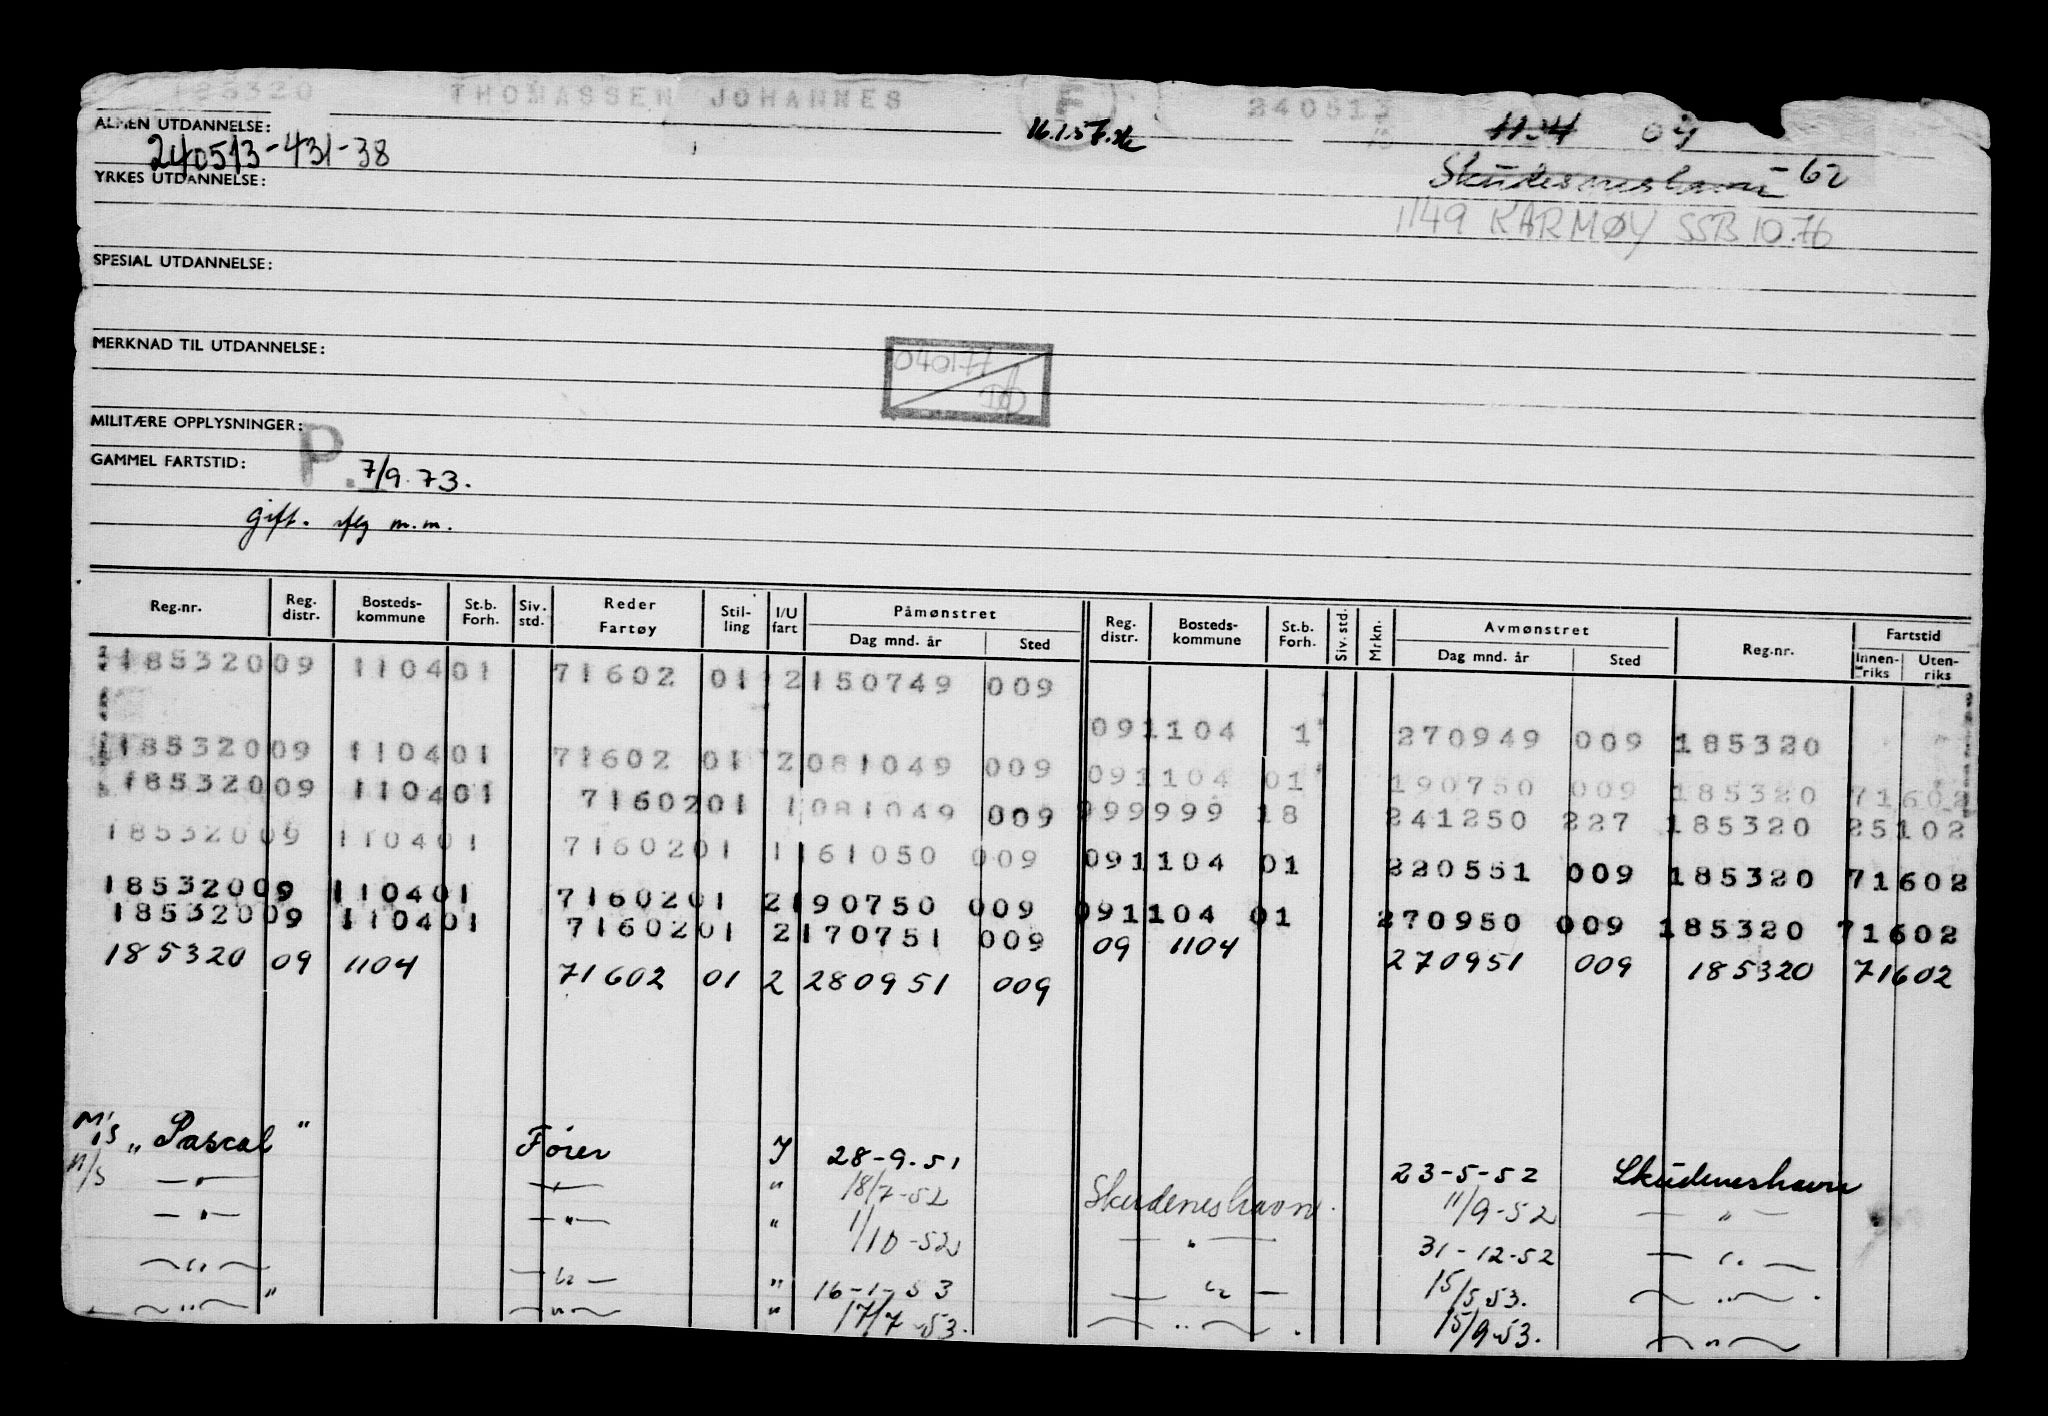 185320 THOMASSEN JOHANNES E 240513
ALMEN UTDANNELSE: 16.1.57. 11.04 09
240513-431-38
YRKES UTDANNELSE: Skudesneshavn - 62
1149 KARMØY SSB 10.76
SPESIAL UTDANNELSE:
MERKNAD TIL UTDANNELSE:
040177
MILITÆRE OPPLYSNINGER:
GAMMEL FARTSTID: P. 7/9.73.
gift. m.m.
Reg.nr. Reg. distr. Bosteds- kommune St.b. Forh. Siv. std. Reder Fartøy Stil- ling I/U fart Påmønstret Dag mnd. år Sted Reg. distr. Bosteds- kommune St.b. Forh. Siv. std. Mrkn. Avmønstret Dag mnd. år Sted Reg.nr. Fartstid Innen- riks Uten- riks
185320 09 1104 01 71602 01 2 150749 009
09 1104 1 270949 009 185320
185320 09 1104 01 71602 01 2 081049 009 09 1104 01 190750 009 185320 71602
185320 09 1104 01 71602 01 1 081049 009 999999 18 241250 227 185320 25102
185320 09 1104 01 71602 01 1 161050 009 09 1104 01 220551 009 185320 71602
185320 09 1104 01 71602 01 2 190750 009 09 1104 01 270950 009 185320 71602
185320 09 1104 01 71602 01 2 170751 009 09 1104 270951 009 185320 71602
185320 09 1104 71602 01 2 280951 009
M/S „Pascal" Fører I 28-9-51 23-5-52 Skudeneshavn
M/S —"— —"— " 18/7-52 Skudeneshavn. 11/9-52 —"—
—"— —"— " 1/10-52 —"— 31-12-52 —"—
—"— —"— " 16-1-53 —"— 15/5 53. —"—.
—"— " —"— " 17/7-53. —"—. 15/9-53. —"—